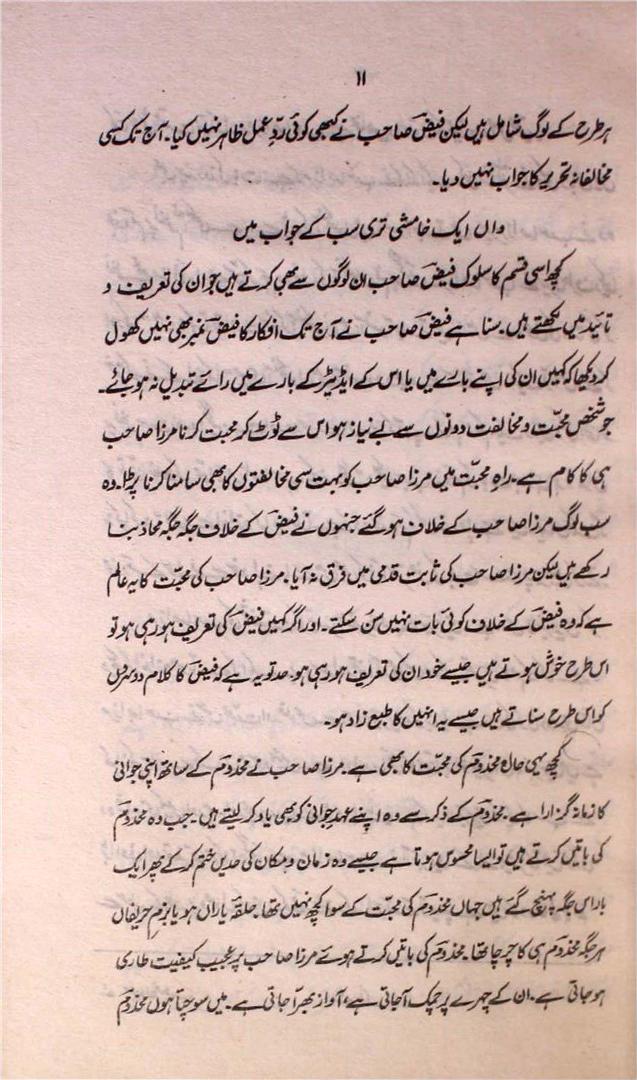 ۱۱
ہر طرح کے لوگ شامل ہیں لیکن فیضؔ صاحب نے کبھی کوئی ردِّ عمل ظاہر نہیں کیا۔ آج تک کسی
مخالفانہ تحریر کا جواب نہیں دیا۔
واں ایک خامشی تری سب کے جواب میں
کچھ اسی قسم کا سلوک فیضؔ صاحب ان لوگوں سے بھی کرتے ہیں جو ان کی تعریف و
تائید میں لکھتے ہیں۔ سنا ہے فیضؔ صاحب نے آج تک افکار کا فیضؔ نمبر بھی نہیں کھول
کر دیکھا کہ کہیں ان کی اپنے بارے میں یا اس کے ایڈیٹر کے بارے میں رائے تبدیل نہ ہو جائے۔
جو شخص محبّت و مخالفت دونوں سے بے نیاز ہو اس سے ٹوٹ کر محبت کرنا مرزا صاحب
ہی کا کام ہے۔ راہِ محبّت میں مرزا صاحب کو بہت سی مخالفتوں کا بھی سامنا کرنا پڑا۔ وہ
سب لوگ مرزا صاحب کے خلاف ہو گئے جنہوں نے فیضؔ کے خلاف جگہ جگہ محاذ بنا
رکھے ہیں لیکن مرزا صاحب کی ثابت قدمی میں فرق نہ آیا۔ مرزا صاحب کی محبّت کا یہ عالم
ہے کہ وہ فیضؔ کے خلاف کوئی بات نہیں سُن سکتے۔ اور اگر کہیں فیضؔ کی تعریف ہو رہی ہو تو
اس طرح خوش ہوتے ہیں جیسے خود ان کی تعریف ہو رہی ہو۔ حد تو یہ ہے کہ فیضؔ کا کلام دوسروں
کو اس طرح سناتے ہیں جیسے یہ انہیں کا طبع زاد ہو۔
کچھ یہی حال مخدومؔ کی محبّت کا بھی ہے۔ مرزا صاحب نے مخدومؔ کے ساتھ اپنی جوانی
کا زمانہ گزارا ہے۔ مخدومؔ کے ذکر سے وہ اپنے عہدِ جوانی کو بھی یاد کر لیتے ہیں۔ جب وہ مخدومؔ
کی باتیں کرتے ہیں تو ایسا محسوس ہوتا ہے جیسے وہ زمان و مکان کی حدیں ختم کر کے پھر ایک
بار اس جگہ پہنچ گئے ہیں جہاں مخدومؔ کی محبّت کے سوا کچھ نہیں تھا۔ حلقۂ یاراں ہو یا بزمِ حریفاں
ہر جگہ مخدومؔ ہی کا چرچا تھا۔ مخدومؔ کی باتیں کرتے ہوئے مرزا صاحب پر عجیب کیفیت طاری
ہو جاتی ہے۔ ان کے چہرے پر چمک آ جاتی ہے، آواز بھرّا جاتی ہے۔ میں سوچتا ہوں مخدومؔ